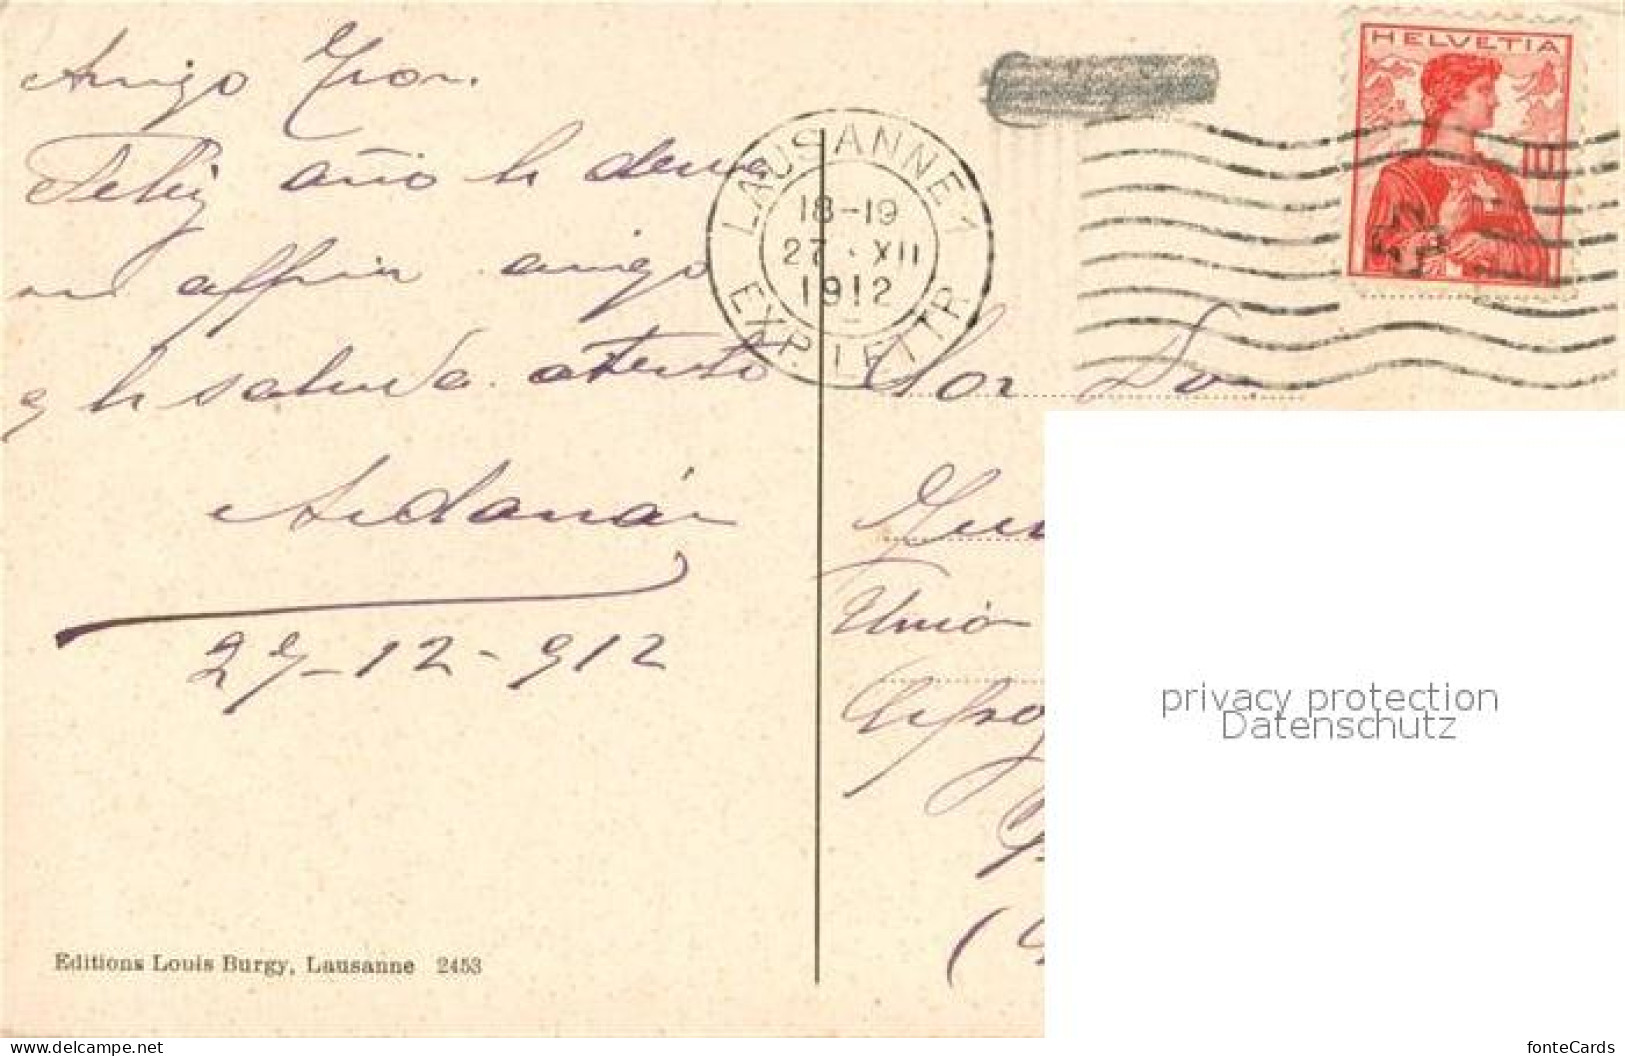 Amigo
Feliz año le desea
su affmo amigo
q le saluda atento
27-12-912
Editions Louis Burgy, Lausanne 2453
LAUSANNE 1
18-19
27·XII
1912
EXP. LETTR.
HELVETIA
10
Sor Do.
Unión
privacy protection
Datenschutz
www.delcampe.net
fonteCards